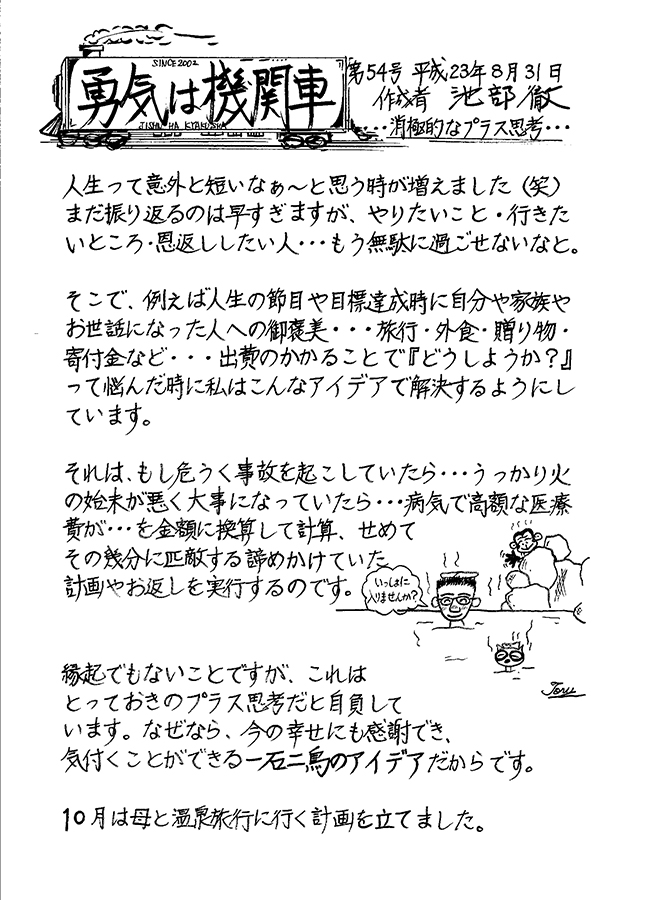 SINCE2002
勇気は機関車
JISHU HA KYAKUSHA
第54号 平成23年8月31日
作成者 池部 徹
・・・消極的なプラス思考・・・
人生って意外と短いなぁ〜と思う時が増えました（笑）
まだ振り返るのは早すぎますが、やりたいこと・行きた
いところ・恩返ししたい人・・・もう無駄に過ごせないなと。
そこで、例えば人生の節目や目標達成時に自分や家族や
お世話になった人への御褒美・・・旅行・外食・贈り物・
寄付金など・・・出費のかかることで『どうしようか？』
って悩んだ時に私はこんなアイデアで解決するようにし
ています。
それは、もし危うく事故を起こしていたら・・・うっかり火
の始末が悪く大事になっていたら・・・病気で高額な医療
費が・・・を金額に換算して計算、せめて
その幾分に匹敵する諦めかけていた
計画やお返しを実行するのです。
いっしょに
入りませんか？
Toru
縁起でもないことですが、これは
とっておきのプラス思考だと自負して
います。なぜなら、今の幸せにも感謝でき、
気付くことができる一石二鳥のアイデアだからです。
10月は母と温泉旅行に行く計画を立てました。